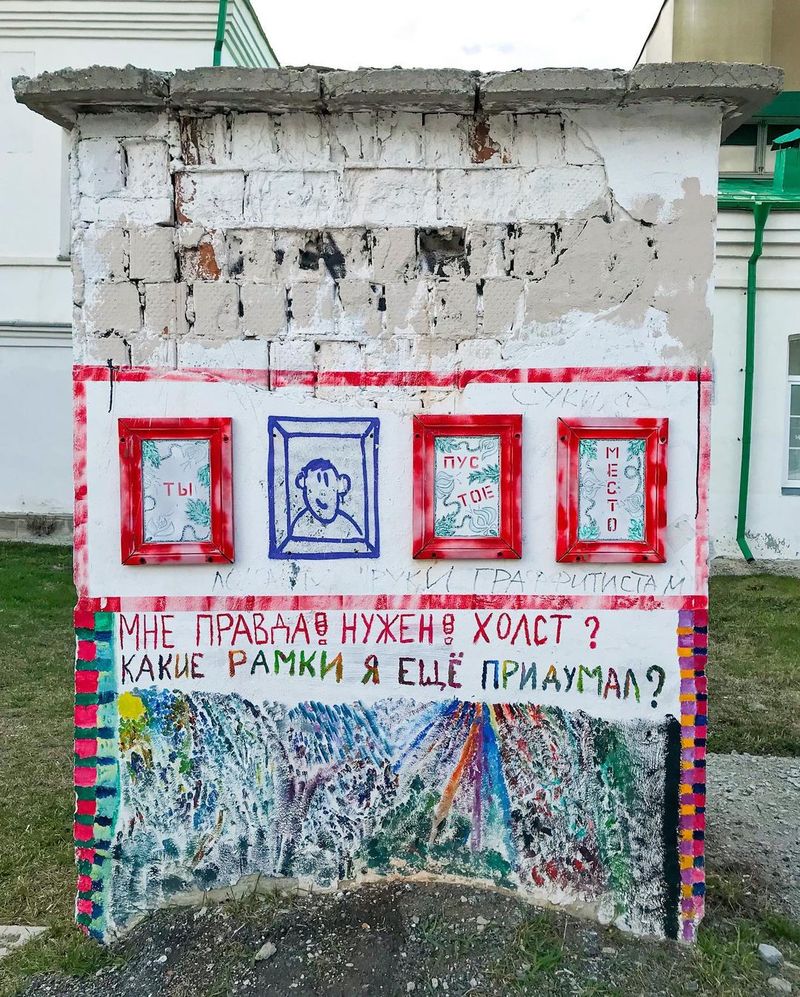 ТЫ
ПУС
ТОЕ
МЕСТО
РУКИ ГРАФФИТИСТАМ
МНЕ ПРАВДА! НУЖЕН! ХОЛСТ?
КАКИЕ РАМКИ Я ЕЩЁ ПРИДУМАЛ?